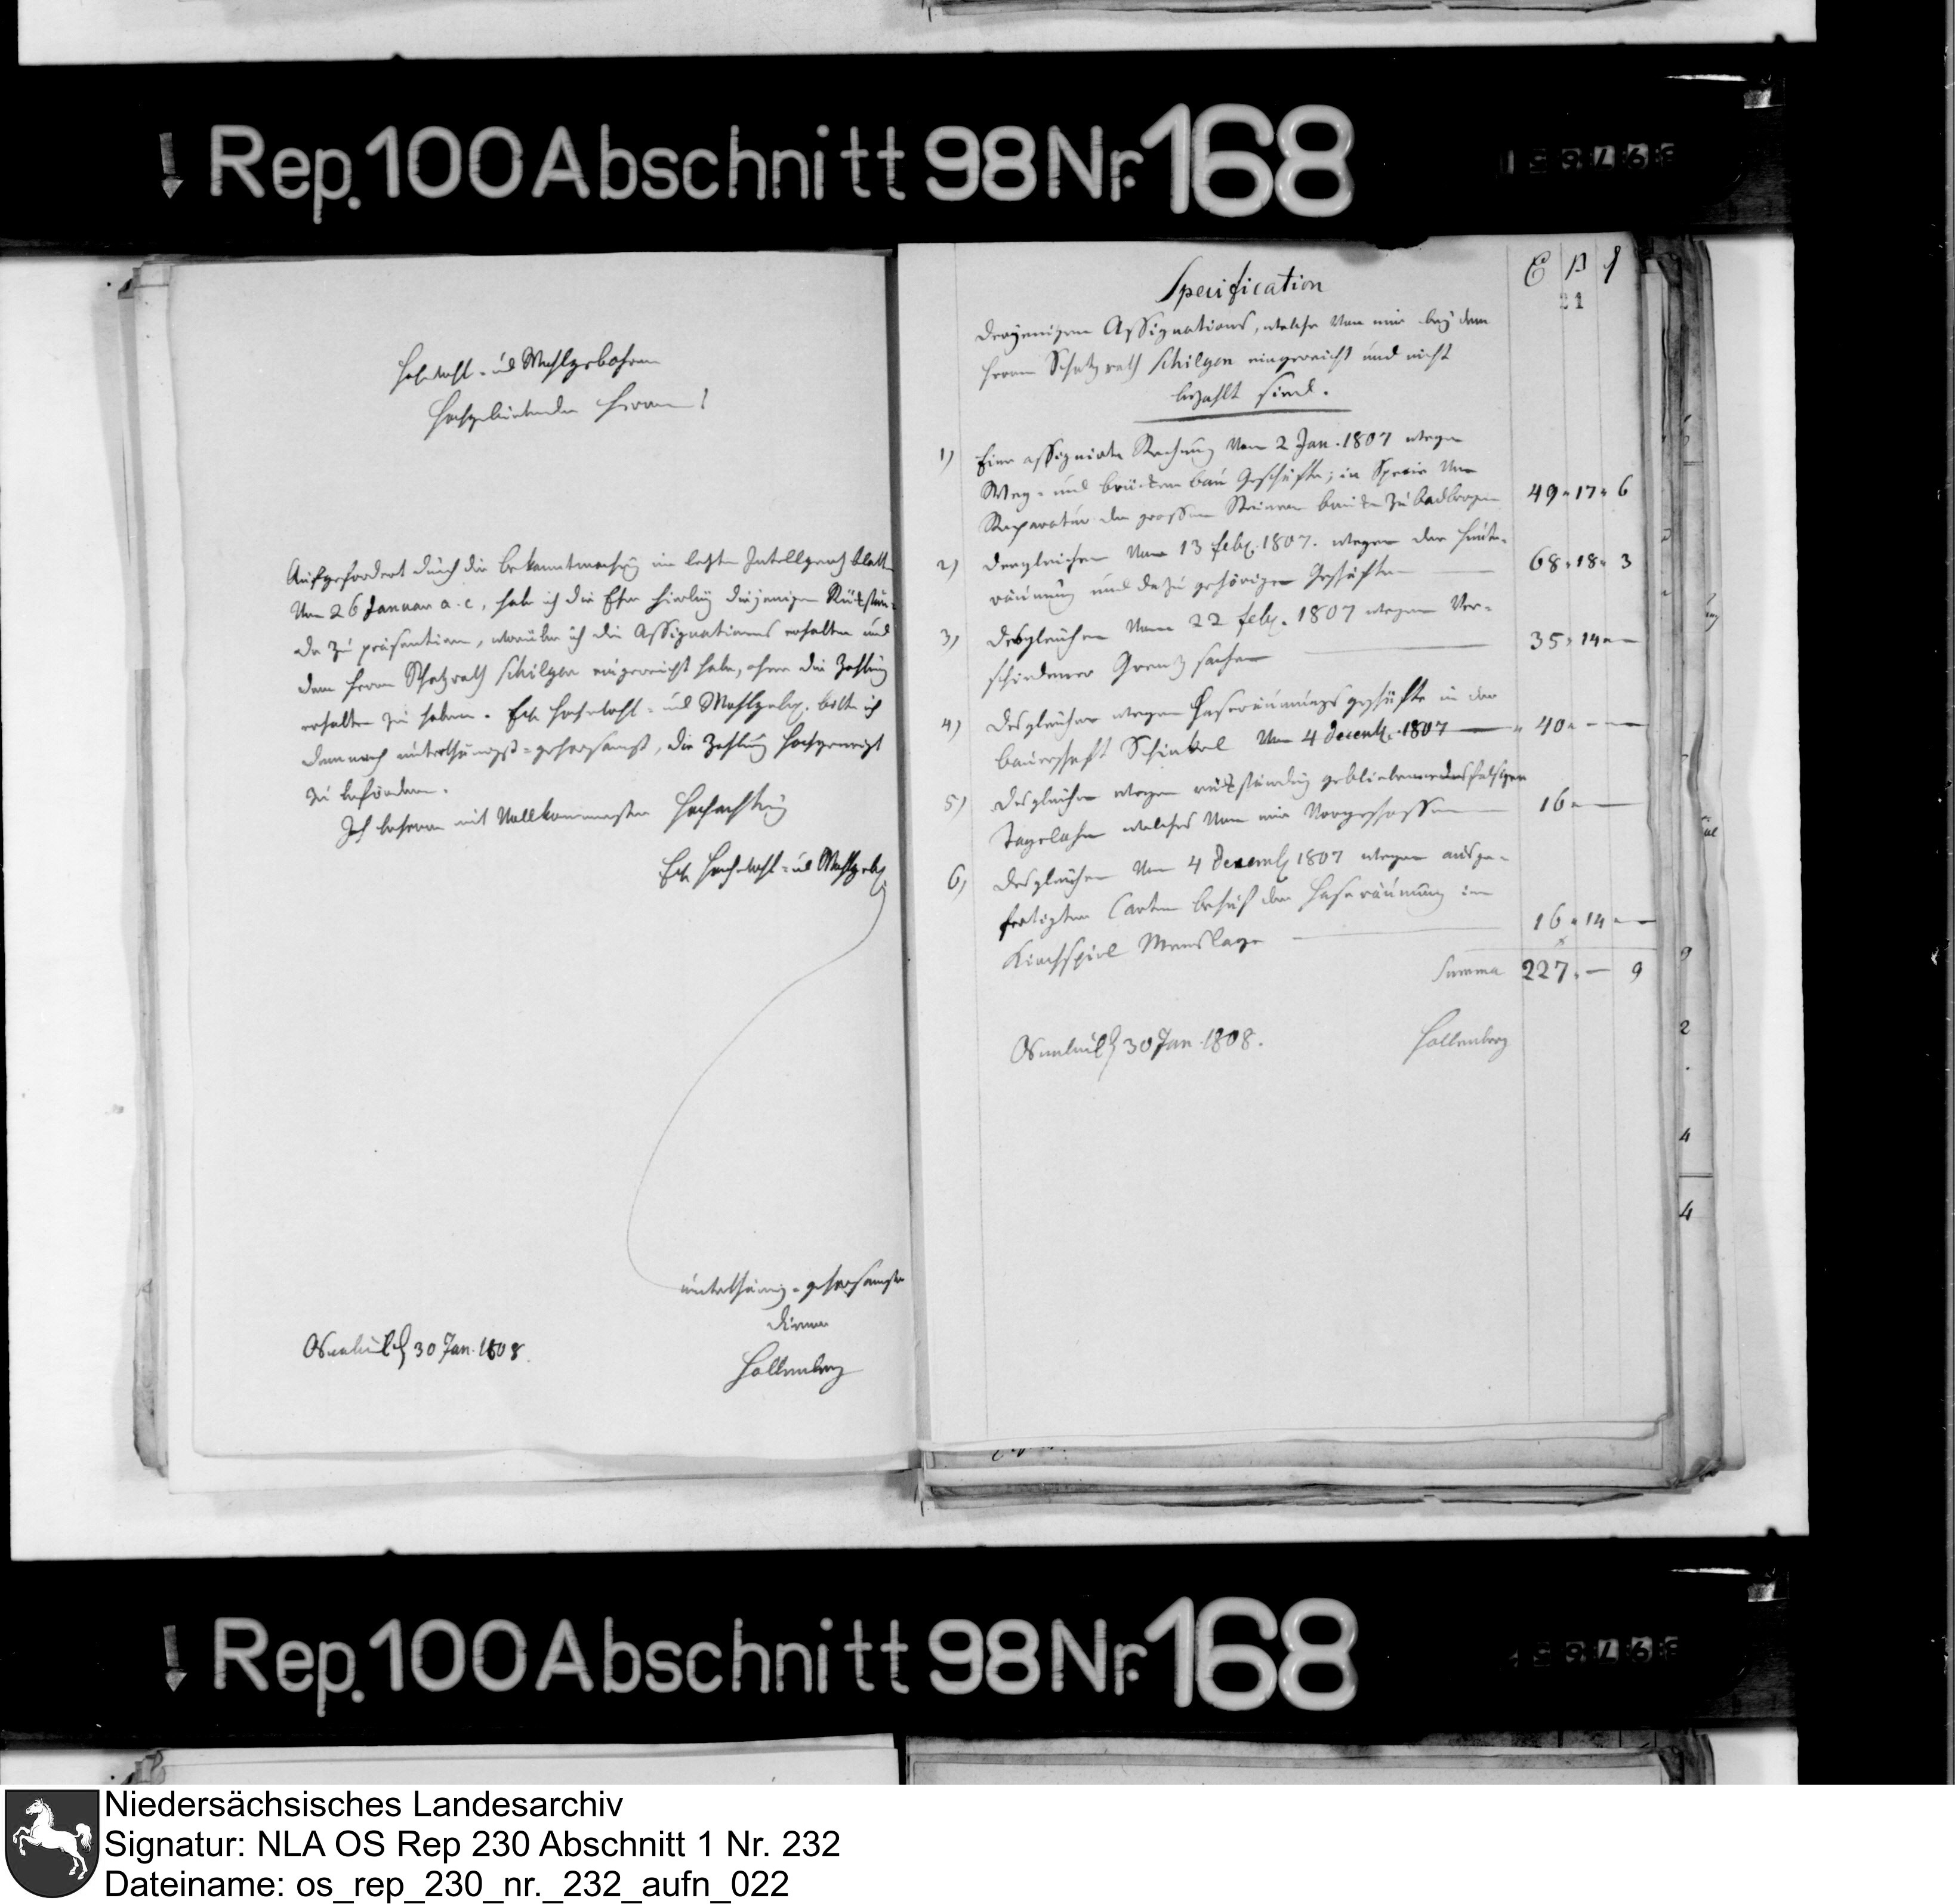 Rep. 100 Abschnitt 98 Nr. 168
Hochwohl- und Wohlgebohrne
Hochgebietende Herren!
Aufgefordert durch die Bekanntmachung im letzten Intelligenz blatt
vom 26 Januar a. c., habe ich die Ehre hierbey diejenigen Rückstän-
de zu präsentiren, worüber ich die Assignationes erhalten und
dem Herrn Schatzrath Schilgen eingereicht habe, ohne die Zahlung
erhalten zu haben. Ew. Hochwohl- und Wohlgeb. bitte ich
demnach unterthänigst-gehorsamst, die Zahlung hochgeneigt
zu befördern.
Ich beharre mit Vollkommenster Hochachtung
Ew. Hochwohl- und Wohlgeb.
unterthänig-gehorsamster
Diener
Hollenberg
Osnabrück 30 Jan. 1808.
Specification
derjenigen Assignations, welche von mir bey dem
Herrn Schatzrath Schilgen eingereicht und nicht
bezahlt sind.
21
1) Eine assignirte Rechnung vom 2 Jan. 1807 wegen
Weg- und brückenbau Geschäfte; in Specie von
Reparatur der grossen Steinern brücke zu badbergen 49 " 17 " 6
2) dergleichen vom 13 feby. 1807. wegen der Hunte-
räumung und dazu gehörigen Geschäfte 68 " 18 " 3
3) desgleichen vom 22 feby. 1807 wegen Ver-
schiedener Grentzsachen 35 " 14 " —
4) desgleichen wegen Haseräumungsgeschäfte in der
bauerschaft Schinkel vom 4 decemb. 1807 — " 40 " — —
5) desgleichen wegen rückständig gebliebenen desfalsigen
Tagelohn welches von mir Vorgeschossen 16 " —
6) desgleichen vom 4 Decemb 1807 wegen ausge-
fertigten Carten behuf der Haseräumung im
Kirchspiel Menslage — 16 " 14 " —
Summa 227 " — 9
Osnabrück 30 Jan. 1808.
Hollenberg
Rep. 100 Abschnitt 98 Nr. 168
Niedersächsisches Landesarchiv
Signatur: NLA OS Rep 230 Abschnitt 1 Nr. 232
Dateiname: os_rep_230_nr._232_aufn_022